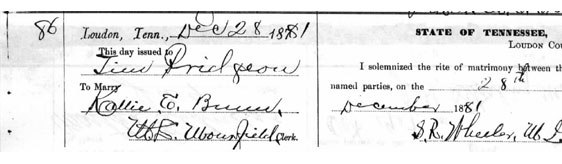 86
Loudon, Tenn., Dec 28 1881
This day issued to
Tim Pridgeon
To Marry
Kallie E. Bunn,
Clerk.
STATE OF TENNESSEE,
LOUDON COU
I solemnized the rite of matrimony between the
named parties, on the 28th
December 1881
S.R. Wheeler, M